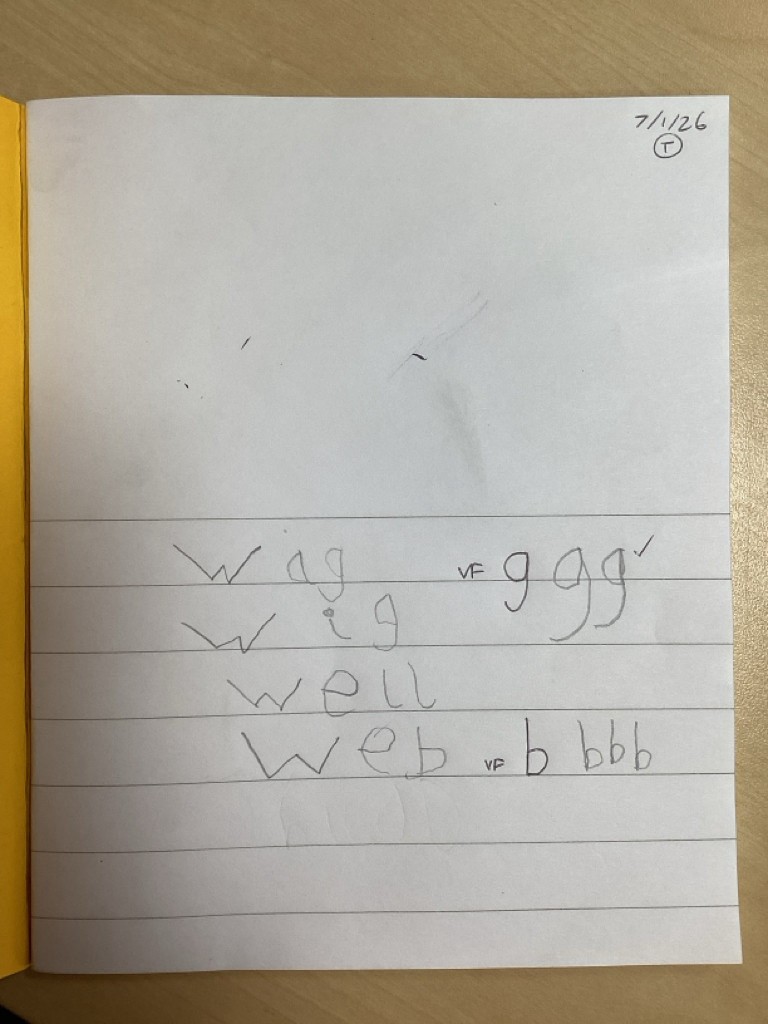 7/1/26
T
wag VF g g g ✓
wig
well
web VF b b b b